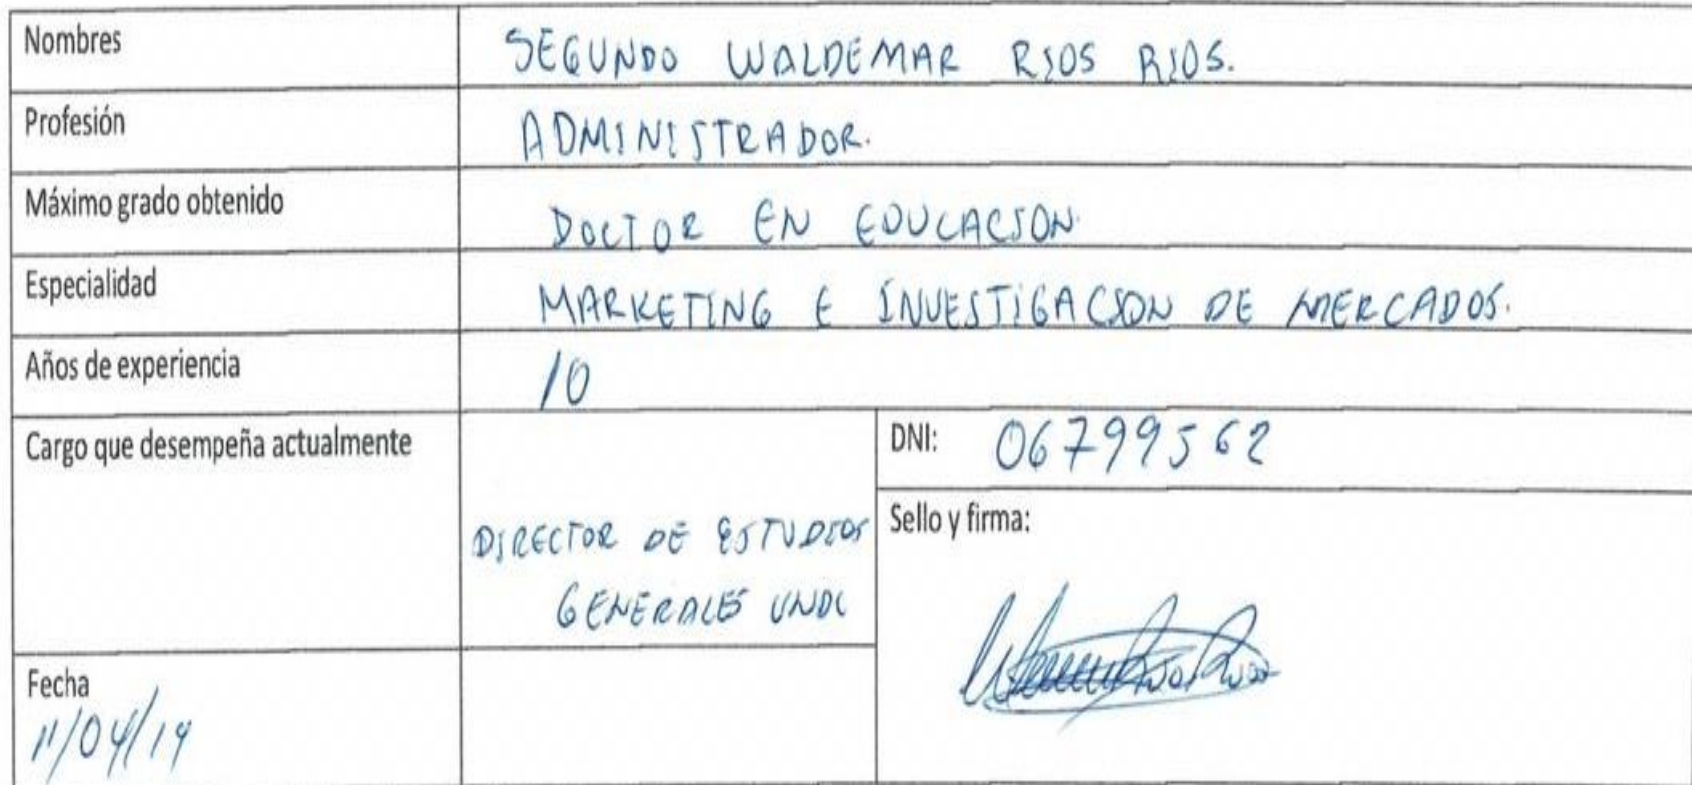 Nombres SEGUNDO WALDEMAR RIOS RIOS.
Profesión ADMINISTRADOR.
Máximo grado obtenido DOCTOR EN EDUCACION.
Especialidad MARKETING E INVESTIGACION DE MERCADOS.
Años de experiencia 10
Cargo que desempeña actualmente
DIRECTOR DE ESTUDIOS
GENERALES
DNI: 06799562
Sello y firma:
Fecha